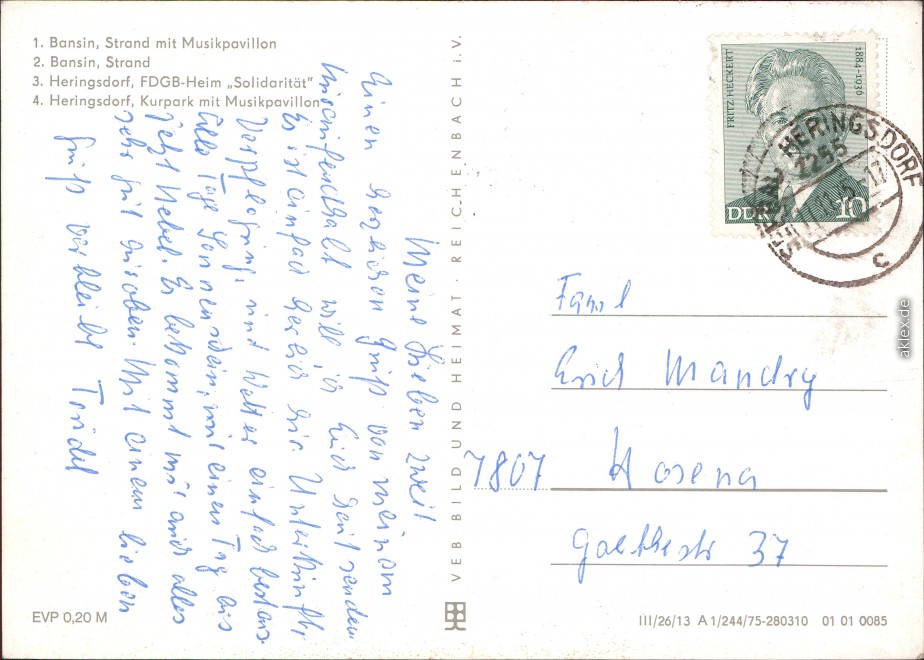 1. Bansin, Strand mit Musikpavillon
2. Bansin, Strand
3. Heringsdorf, FDGB-Heim „Solidarität“
4. Heringsdorf, Kurpark mit Musikpavillon
Meine Lieben zwei!
Einen herzlichen Gruß von meinem
will ich Euch heut senden
Es ist einfach herrlich hir. Unterkunft,
Verpflegung, und Wetter einfach bestens.
Alle Tage Sonnenschein, nur einen Tag bis
jetzt Nebel. Es bekommt mir auch alles
sehr gut hir oben. Mit einem lieben
Gruß verbleibt Trudel
VEB BILD UND HEIMAT · REICHENBACH i. V.
FRITZ HECKERT
1884-1936
DDR
10
HERINGSDORF
2255
SEEBAD
c
Faml
Erich Mandry
7807 Hosena
Goethestr 37
EVP 0,20 M
III/26/13 A 1/244/75-280310 01 01 0085
akleX.de